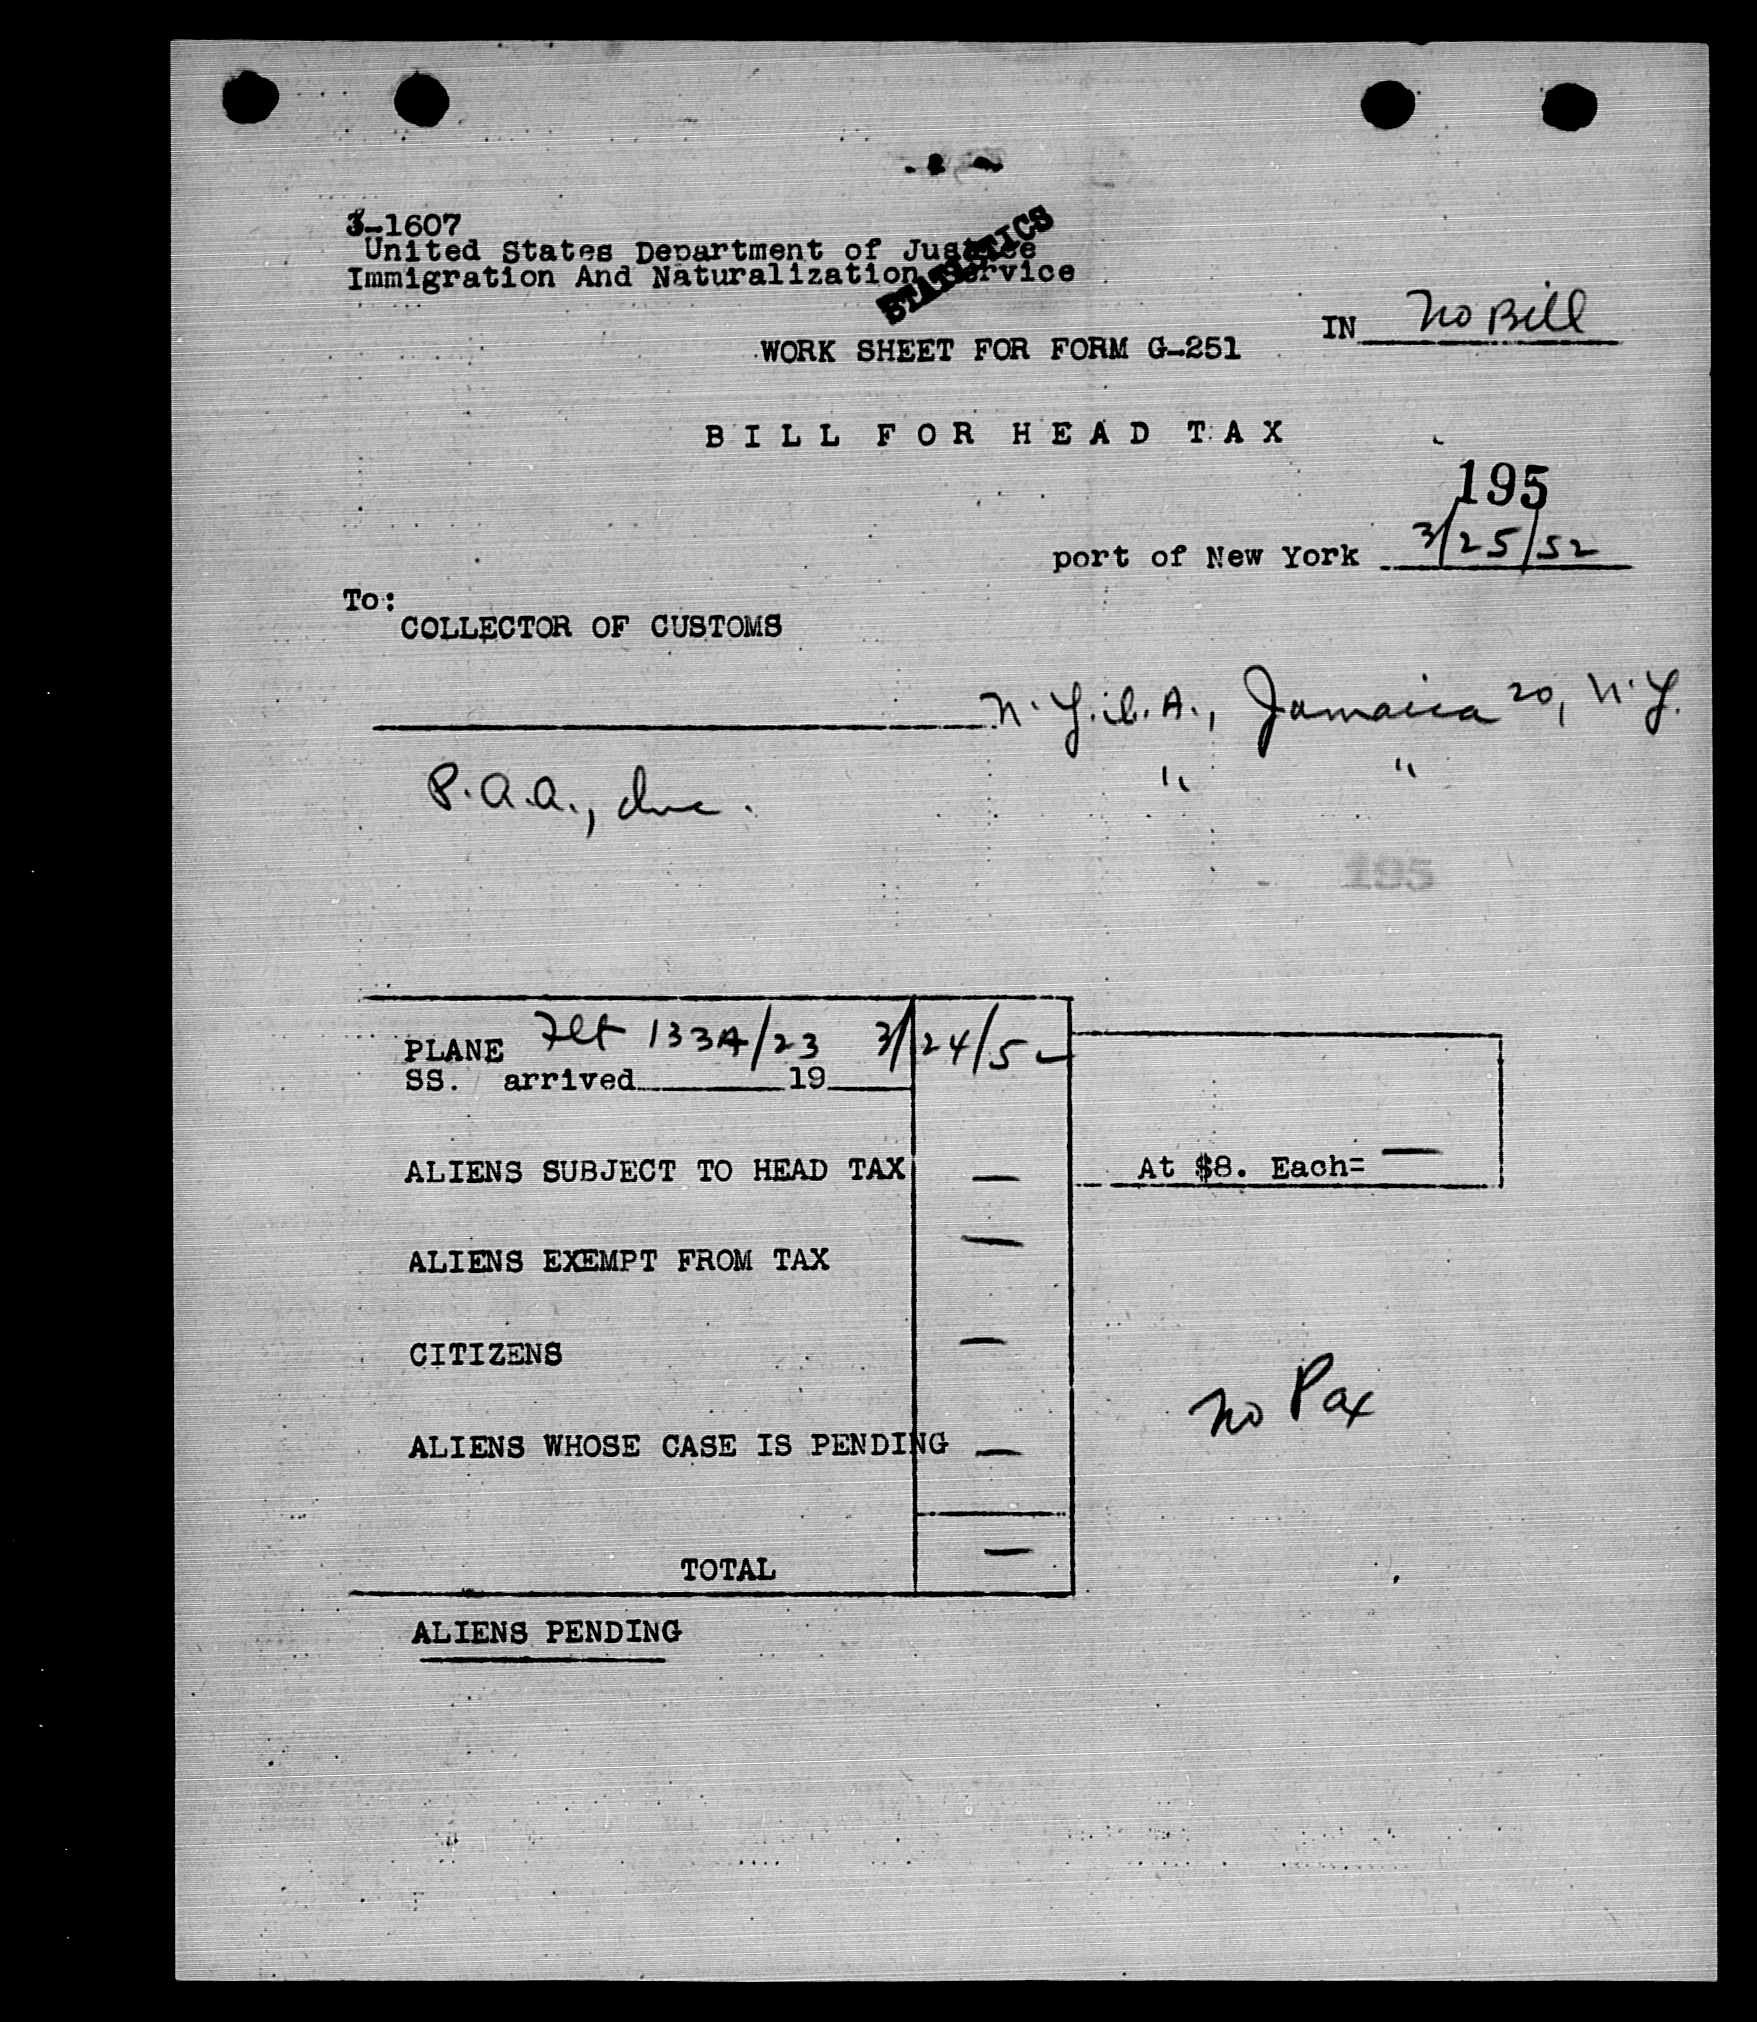 3-1607
United States Department of Justice
Immigration And Naturalization Service
STATISTICS
IN No Bill
WORK SHEET FOR FORM G-251
BILL FOR HEAD TAX
195
port of New York 3/25/52
To:
COLLECTOR OF CUSTOMS
N.Y.I.A., Jamaica 20, N.Y.
P.A.A., Inc. " "
195
PLANE Flt 133A/23 3/24/52
SS. arrived 19
ALIENS SUBJECT TO HEAD TAX — At $8. Each= —
ALIENS EXEMPT FROM TAX —
CITIZENS —
No Pax
ALIENS WHOSE CASE IS PENDING —
TOTAL —
ALIENS PENDING